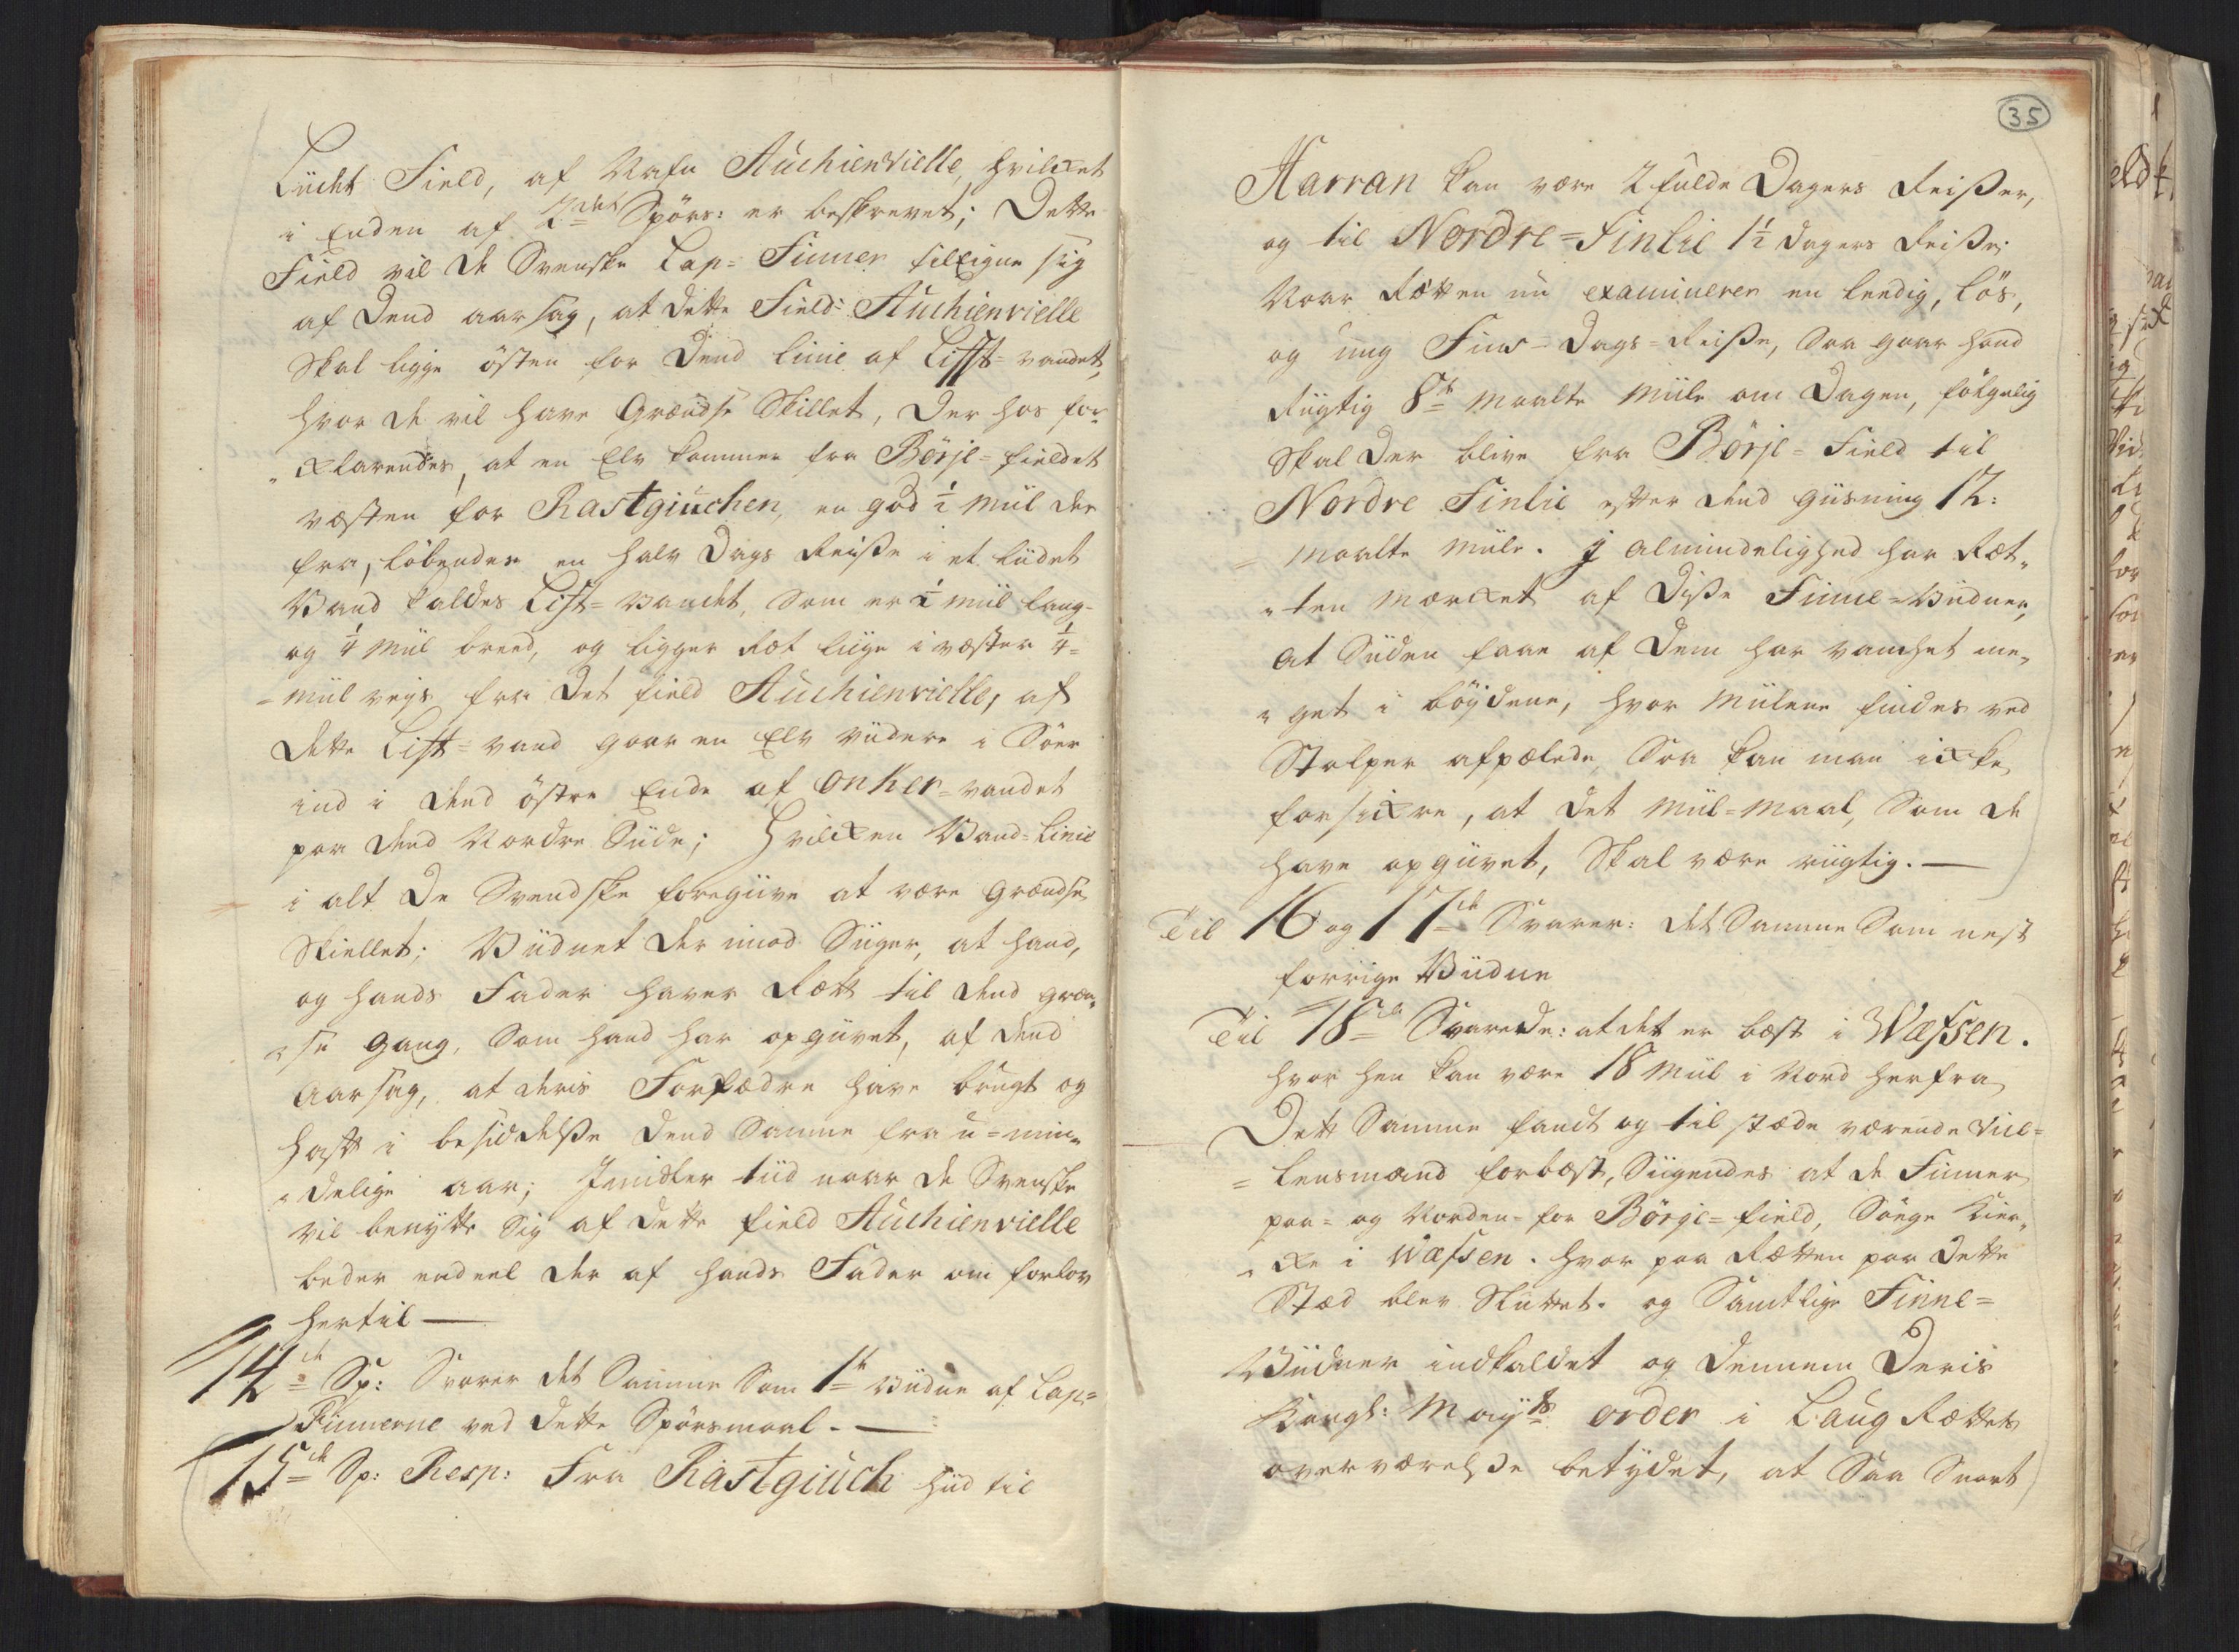 Lüdet Field, af Nafn Auchienvielle, hvilcket
i Enden af 2det Spörs: er beskrevet; Dette
Field vil de Svenske Lap-Finner tilEigne sig
af Dend aarsag, at dette Field: Auchienvielle
Skal ligge östen for Dend Linie af Lisst-vandet,
hvor de vil have Grændse Skillet, Der hos for-
„cklarendes, at en Elv kommer fra Börje-fieldet
vesten for Rastgiuchen, en god ½ Miil der
fra, löbendes en halv Dags Reise i et lüdet
Vand kaldes List-vandet, Som er ½ Miil lang-
og ¼ Miil breed, og ligger Ræt liige i vester ¼-
-Miil veys fra det field Auchienvielle, af
dette List-vand gaar en Elv viidere i Söer
ind i dend östre Ende af Onker-vandet
paa dend Nordre Siide; Hvilcken Vand-Linie
i alt De Svendske foregiive at være Grændse
Skiellet; Viidnet der imod Siiger, at hand,
og hands Fader haver Rett til dend Græn„
„se Gang, Som hand har opgiivet, af dend
aarsag, at deris Forfædre have brugt og
haft i besiddelsse dend Samme fra u-min„
„delige aar; Imidler tiid naar de Svenske
vil benytte Sig af dette field Auchienvielle
beder endeel der af hands Fader om forlov
hertil —
14de Sp: Svarer det Samme Som 1te viidne af Lap-
Finnerne ved dette Spörsmaal. —
15de Sp: Resp: Fra Rastgiuch hiid til
35
Harran kan være 2 fulde Dagers Reisser,
og til Nordre-Finlie 1½ dagers Reise;
Naar Retten nu examinerer en lendig, lös,
og ung Fins-Dags-Reise, Saa gaar hand
Rigtig 8te maalte Miile om Dagen, fölgelig
Skal der blive fra Börje-Field til
Nordre Finlie efter dend Giisning 12:
- maalte Miile. I Almindelighed har Ret„
„ten mærcket af disse Finne-Viidner,
at Siiden faae af Dem har vanchet me„
„get i böyderne, hvor Miilene findes ved
Stolper afpælede, Saa kan man icke
forsickre, at det Miil-Maal, Som de
have opgiivet, Skal være riigtig. —
Til 16 og 17de Svarer: det Samme Som nest
forrige Viidne
Til 18de Svarede: at det er best i Wefsen.
hvor hen kan være 18 Miil i Nord herfra
Dett Samme fandt og til stæde værende viice-
-Lensmand forbest, Siigendes at de Finner
paa- og Norden-for Börge-field, Söge Kier„
„cke i Wefsen. hvor paa Retten paa dette
Stæd blev Sluttet. og Samtlige Finne-
Viidner indkaldet og dennem Deris
Kongl: Mayts order i Laug Rettets
overværelsse betydet, at Saa Snart